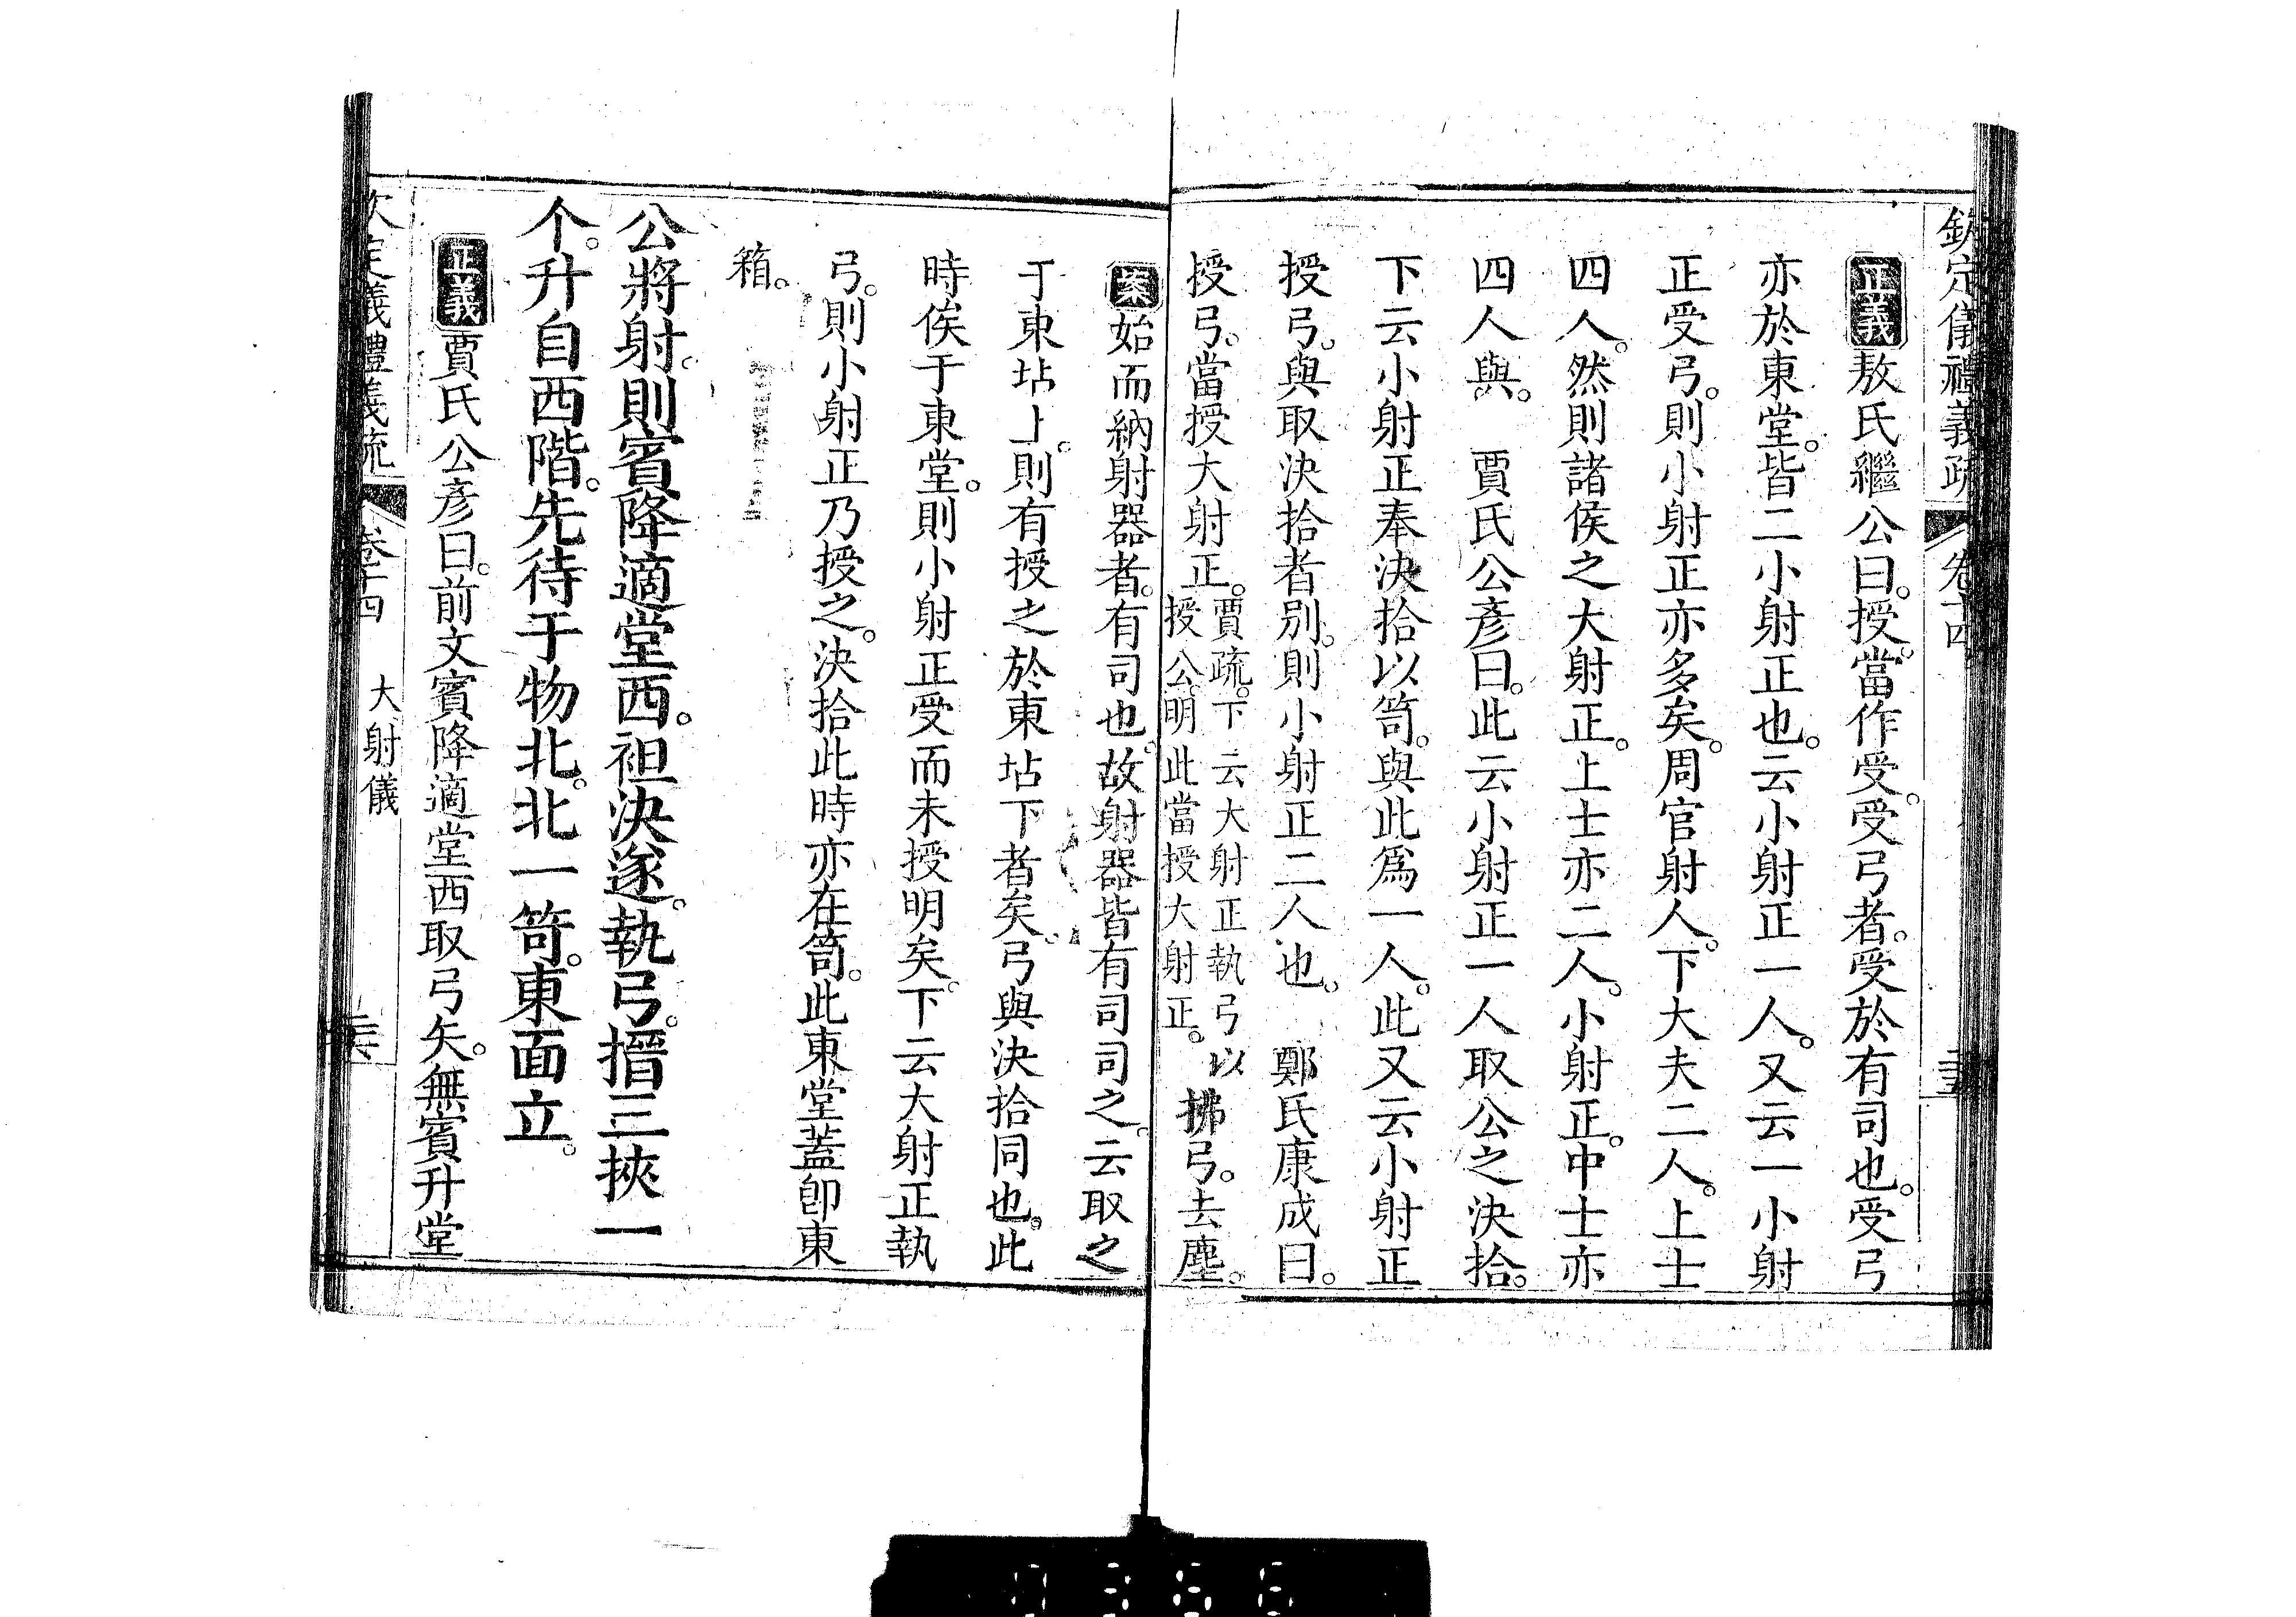 欽定儀禮義疏 卷十四
正義敖氏繼公曰。授。當作受。受弓者。受於有司也。受弓
亦於東堂。皆二小射正也。云小射正一人。又云一小射
正受弓。則小射正亦多矣。周官射人。下大夫二人。上士
四人。然則諸侯之大射正。上士亦二人。小射正。中士亦
四人與。 賈氏公彥曰。此云小射正一人取公之決拾。
下云小射正奉決拾以笥。與此為一人。此又云小射正
授弓。與取決拾者別。則小射正二人也。 鄭氏康成曰。
授弓。當授大射正。賈疏。下云大射正執弓以
授公。明此當授大射正。拂弓。去塵。
案始而納射器者。有司也。故射器皆有司司之。云取之
于東坫上。則有授之於東坫下者矣。弓與決拾同也。此
時俟于東堂。則小射正受而未授明矣。下云大射正執
弓。則小射正乃授之。決拾此時亦在笥。此東堂蓋卽東
箱。
公將射。則賓降適堂西。袒決遂。執弓。搢三挾一
个。升自西階。先待于物北。北一笴。東面立。
正義賈氏公彥曰。前文賓降適堂西取弓矢。無賓升堂
欽定儀禮義疏 卷十四 大射儀